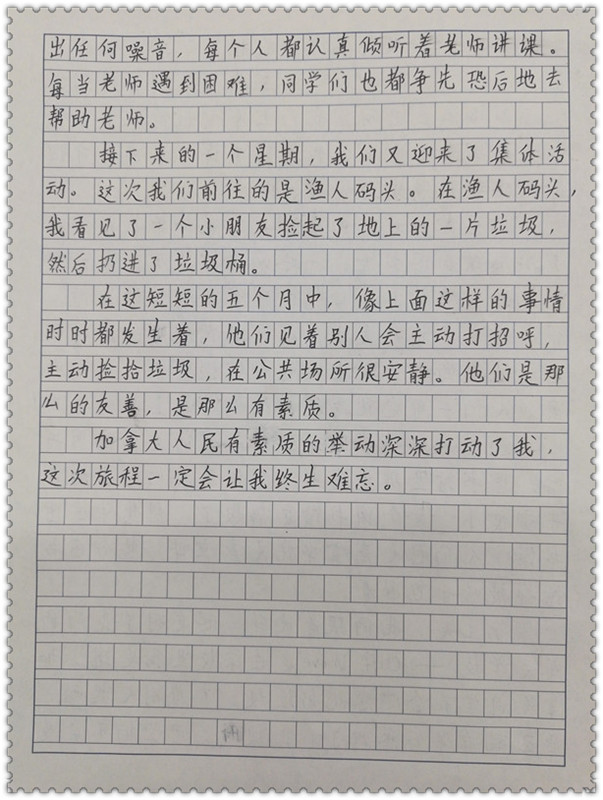 出任何噪音，每个人都认真倾听着老师讲课。
每当老师遇到困难，同学们也都争先恐后地去
帮助老师。
接下来的一个星期，我们又迎来了集体活
动。这次我们前往的是渔人码头。在渔人码头，
我看见了一个小朋友捡起了地上的一片垃圾，
然后扔进了垃圾桶。
在这短短的五个月中，像上面这样的事情
时时都发生着，他们见着别人会主动打招呼，
主动捡拾垃圾，在公共场所很安静。他们是那
么的友善，是那么有素质。
加拿大人民有素质的举动深深打动了我，
这次旅程一定会让我终生难忘。